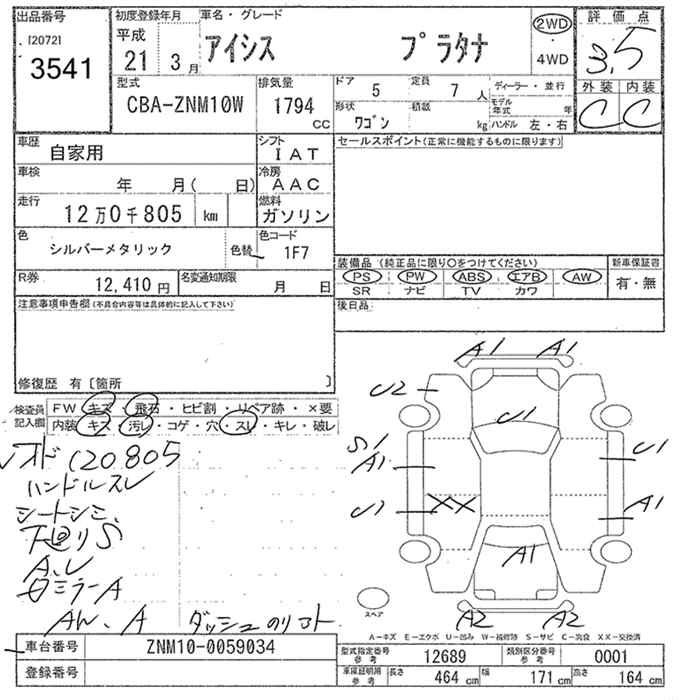 出品番号 初度登録年月 車名・グレード 2WD 評価点
120721 平成 アイシス プラタナ 4WD 3.5
3541 21 3月
型式 排気量 ドア 5 定員 7人 ディーラー・並行 外装 内装
CBA-ZNM10W 1794cc 形状 ワゴン 積載 kg モデル年式 年 ハンドル 左・右 C C
車歴 自家用 シフト IAT セールスポイント(正常に機能するものに限ります)
車検 年 月( 日) 冷房 AAC
走行 12万0千805 km 燃料 ガソリン
色 シルバーメタリック 色替 色コード 1F7
装備品(純正品に限り○をつけてください) 新車保証書
PS PW ABS エアB AW 有・無
SR ナビ TV カワ
R券 12,410円 名変通知期限 月 日
後日品
注意事項申告欄(不具合内容等は具体的に記入して下さい)
修復歴 有〔箇所 〕
検査員記入欄 FW キズ・飛石・ヒビ割・リペア跡・×要
内装 キズ・汚レ・コゲ・穴・スレ・キレ・破レ
A1 A1
U2
U1
S1
A1 U1
U1 XX A1
A1
A2 A2
120805
ハンドルスレ
シートシミ、
下廻りS
A、U
ミラーA
AW、A ダッシュ
スペア
A-キズ E-エクボ U-凹み W-補修跡 S-サビ C-腐食 XX-交換済
車台番号 ZNM10-0059034
登録番号
型式指定番号 参考 12689 類別区分番号 参考 0001
車庫証明用 参考 長さ 464 cm 幅 171 cm 高さ 164 cm